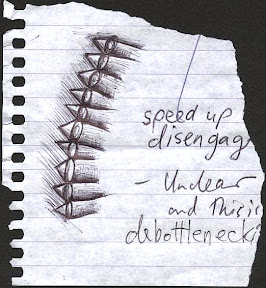 speed up
disengag
- Unclear
and This is
debottlenecki